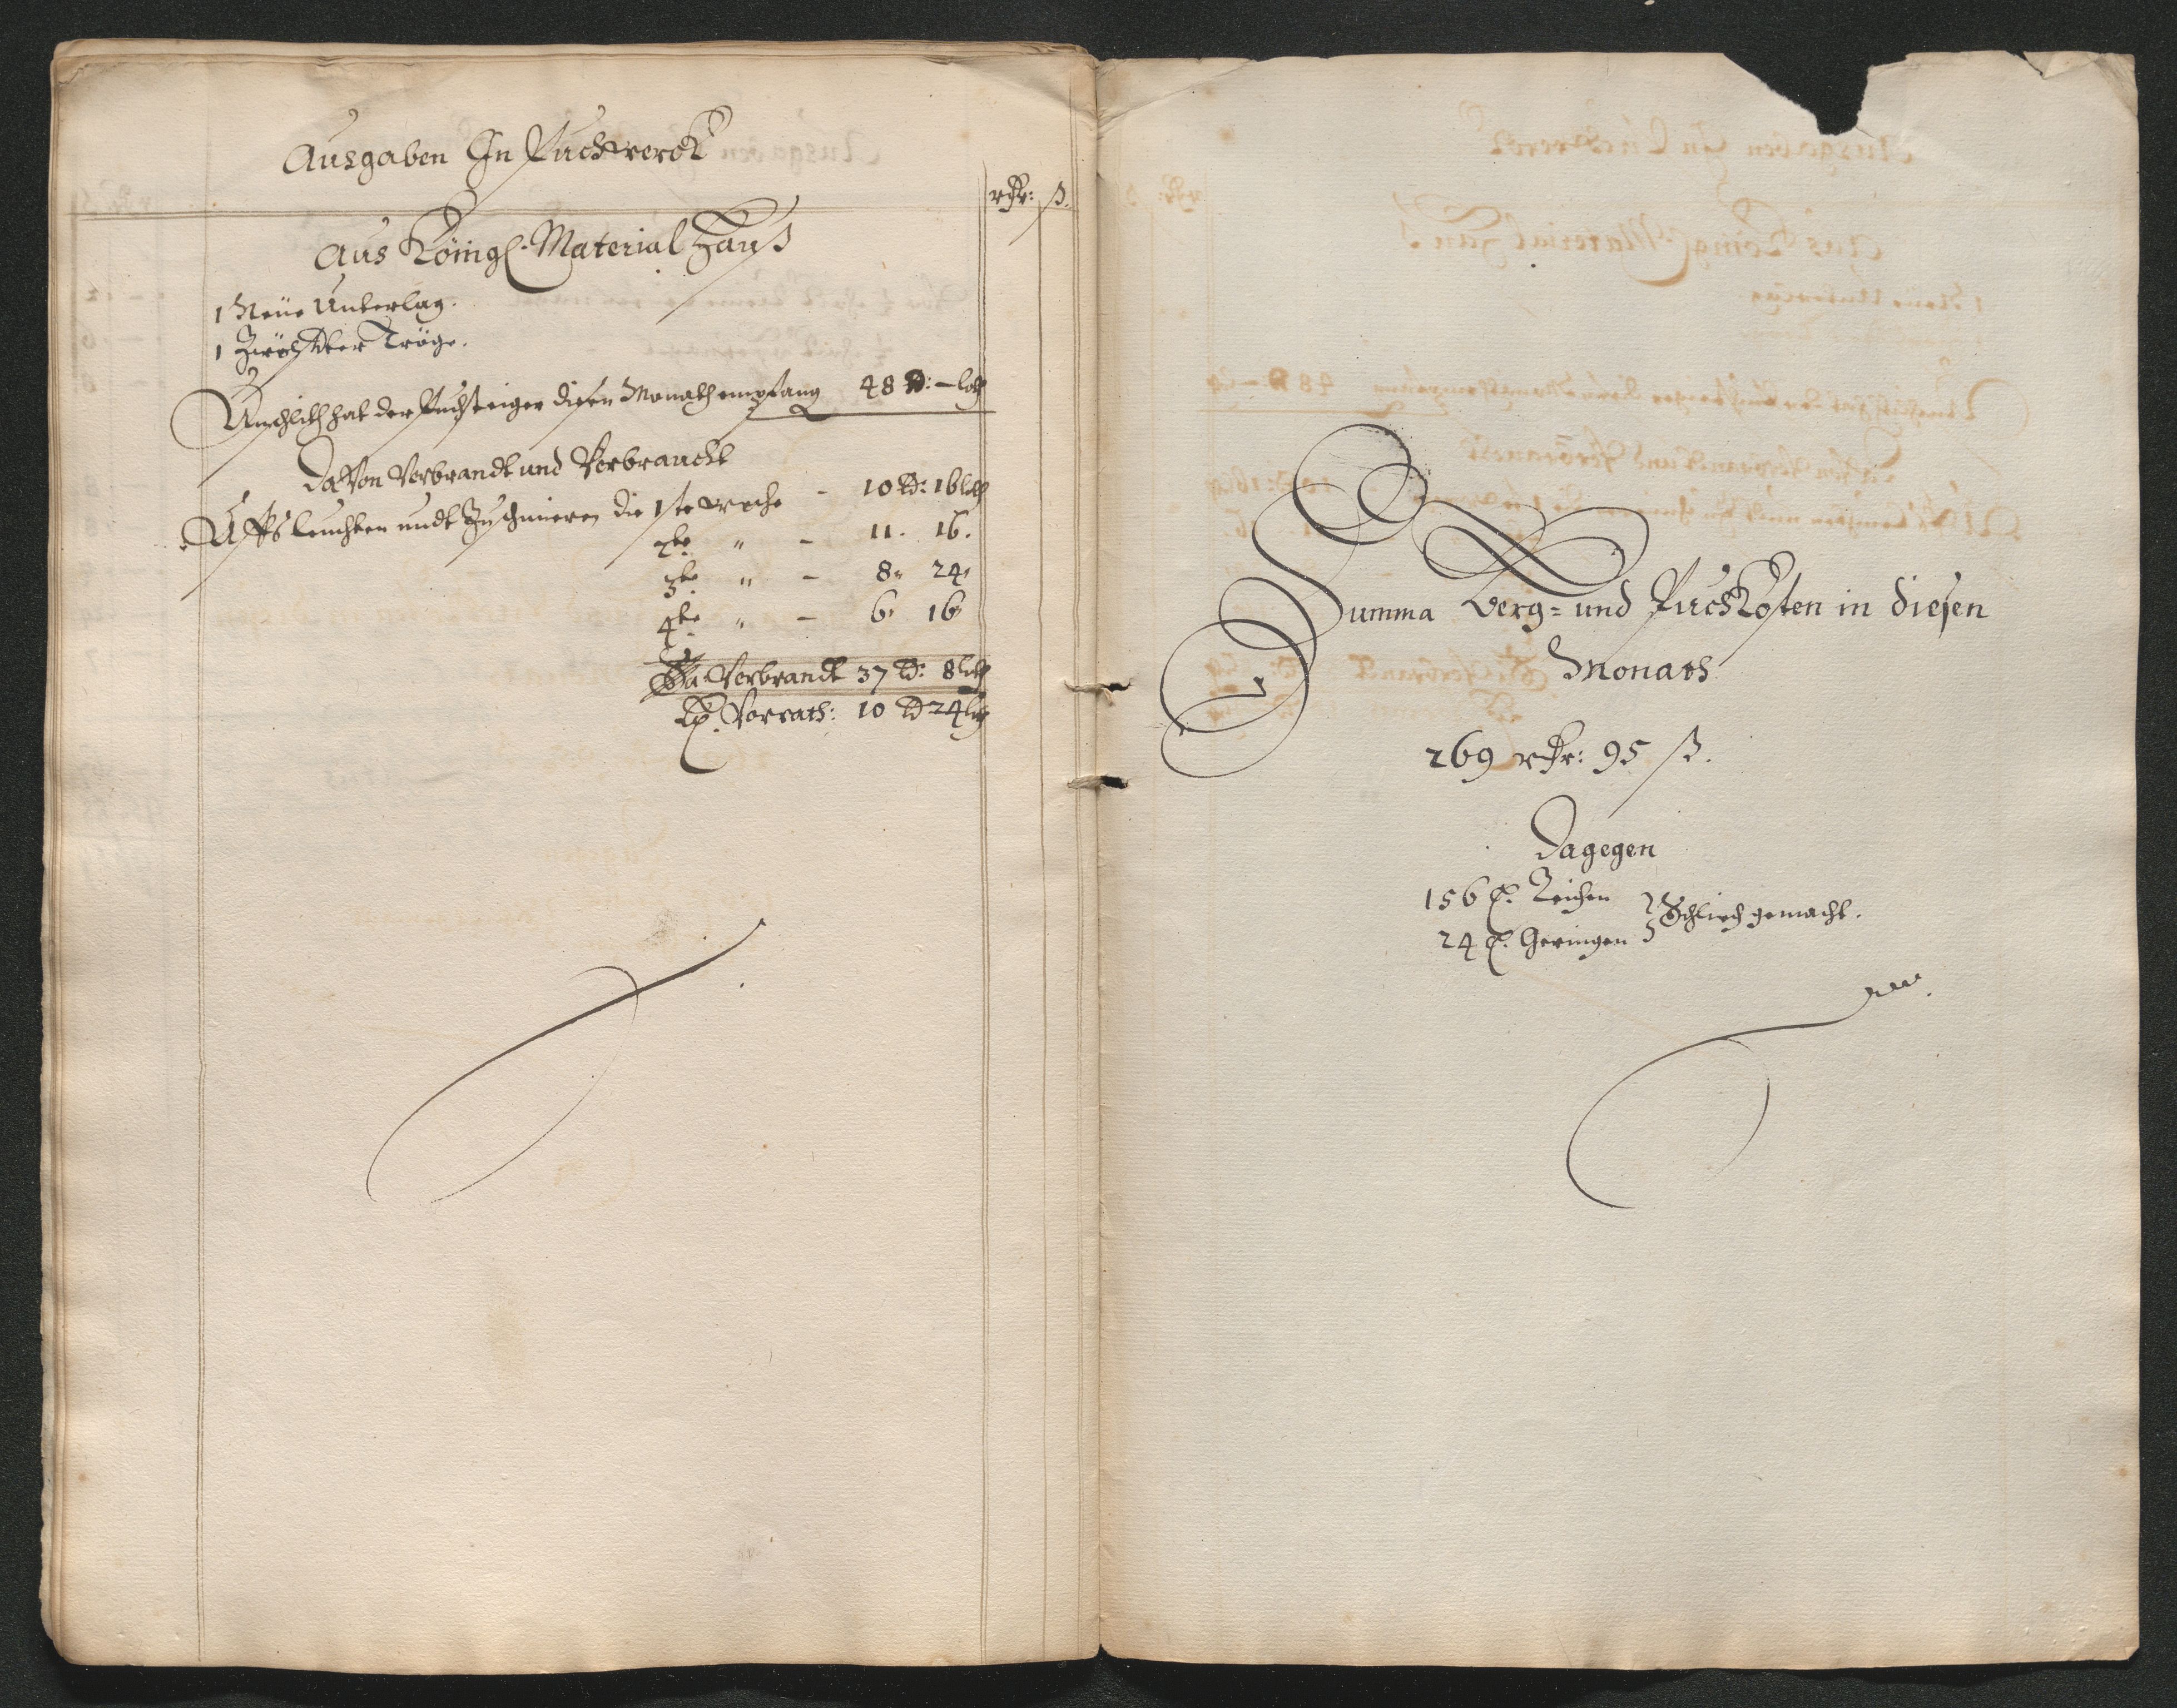 Ausgaben In Puchwerck
rthr: ß.
Aus Königl. Material Hauß
1 Neüe Unterlag.
1 Tröge.
Unschlith hat der Puchsteiger diesen Monath empfang 48 ℔: — loth
Davon Verbrandt und Verbraucht
Uffs leuchten undt Zuschmieren die 1ste woche - 10 ℔: 16 loth
2te " - 11. 16.
3te " - 8. 24.
4te " - 6. 16
Sa. Verbrandt 37 ℔: 8 loth
Vorrath: 10 ℔ 24 loth
Summa Berg= und Puchkosten in diesen
Monath
269 rthr: 95 ß.
Dagegen
156 C. Reichen
24 C. Geringen } Schliech gemacht.